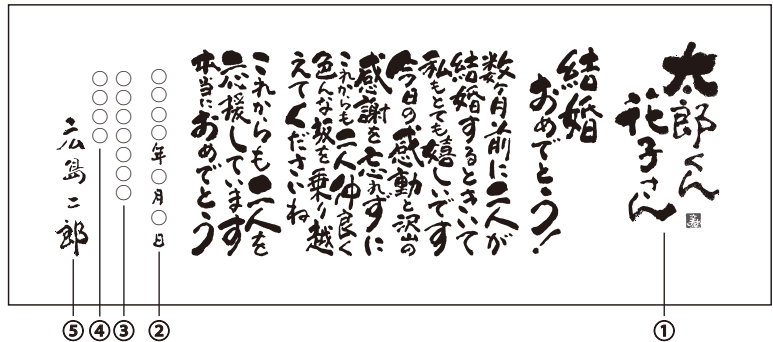 太郎くん
花子さん
結婚
おめでとう!
数ヶ月前に二人が
結婚するときいて
私もとても嬉しいです
今日の感動と沢山の
感謝を忘れずに
これからも二人仲良く
色んな坂を乗り越
えてくださいね
これからも二人を
応援しています
本当におめでとう
〇〇〇〇年〇月〇日
〇〇〇〇〇〇
〇〇〇〇
広島二郎
⑤ ④ ③ ② ①